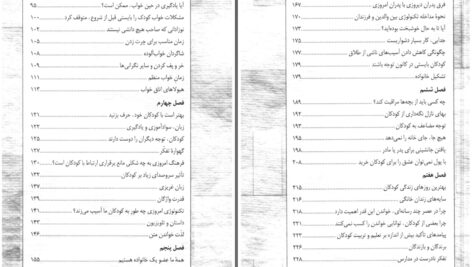 آیا یادگیری در حین خواب، ممکن است؟ ۹۵
مشکلات خواب کودک را بایستی قبل از شروع، متوقف کرد ۱۰۰
نوزادانی که صاحب هیچ دانشی نیستند ۱۰۲
زمان مناسب برای چرت زدن ۱۰۵
شاگردان خواب‌آلوده ۱۰۸
خر و پف کردن و سایر نگرانی‌ها ۱۰۹
زمان خواب منظم ۱۱۱
هیولاهای اتاق خواب ۱۱۶
فصل چهارم
بهتر است با کودکان خود، حرف بزنید ۱۲۱
زبان، سوادآموزی و یادگیری ۱۲۳
کودکان، توجه دیگران را دوست دارند ۱۲۵
گهوارهٔ تفکر ۱۲۷
فرهنگ امروزی به چه شکلی مانع برقراری ارتباط با کودکان است؟ ۱۳۰
تأثیر سروصدای زیاد بر کودکان ۱۳۲
زبان غریزی ۱۳۵
قدرت واژگان ۱۳۹
تکنولوژی امروزی چه طور به کودکان ما آسیب می‌زند؟ ۱۴۱
داستان و تلویزیون ۱۴۳
لذت خواندن متن ۱۴۶
فصل پنجم
همهٔ ما عضو یک خانواده هستیم ۱۵۵
فرق پدران دیروزی با پدران امروزی ۱۶۷
نحوهٔ مداخله تکنولوژی بین والدین و فرزندان ۱۷۰
آیا تا به حال خوشبخت بوده‌اید؟ ۱۷۳
جدایی، کار بسیار دشواریست ۱۷۵
چگونگی کاهش دادن آسیب‌های ناشی از طلاق ۱۷۷
کودکان بایستی در کانون توجه باشند ۱۷۹
تشکیل خانواده ۱۷۹
فصل ششم
چه کسی باید از بچه‌ها مراقبت کند؟ ۱۸۹
بهای نازل نگه‌داری از کودکان ۱۹۲
توجه مضاعف به کودکان ۱۹۳
هیچ جا، جای خانه را نمی‌گیرد ۱۹۵
یافتن جانشینی برای پدر یا مادر ۱۹۸
با پول نمی‌توان عشق را برای کودکان خرید ۲۰۸
فصل هفتم
بهترین روزهای زندگی کودکان ۲۱۵
سایه‌های زندان خانگی ۲۱۶
چرا در عصر چند رسانه‌ای، خواندن این قدر اهمیت دارد ۲۱۸
چرا بعضی از کودکان، توانایی خواندن را کسب نمی‌کنند ۲۲۱
پیامدهای تأکید بیش از اندازه بر تعلیم و تربیت کودکان ۲۲۲
برندگان و بازندگان ۲۲۴
تفکر نادرست در مدارس ۲۲۸